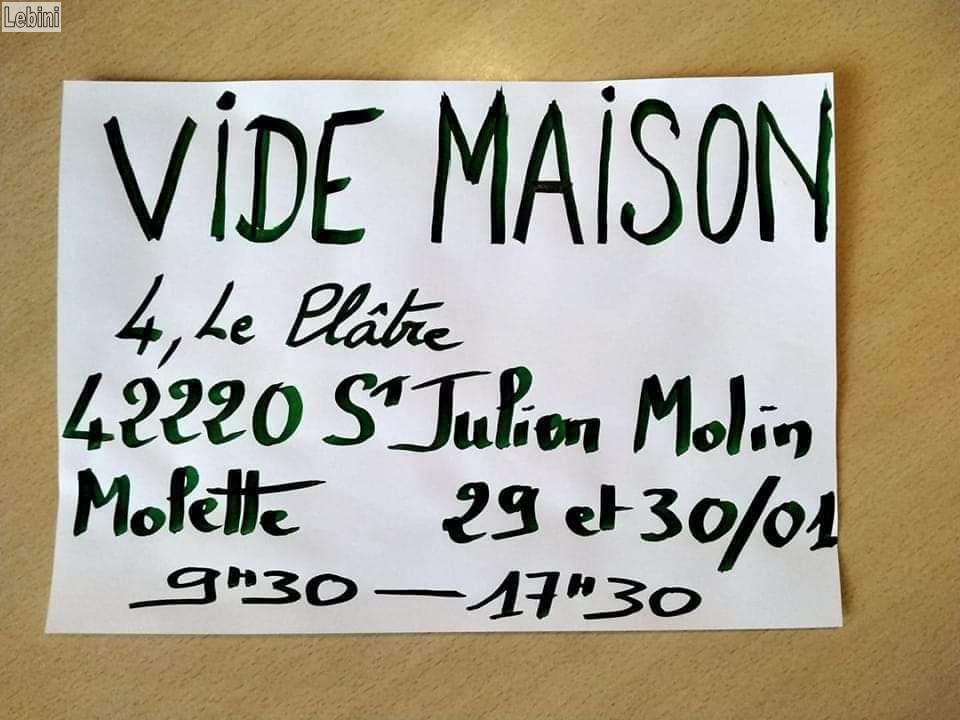 Lebini
ViDE MAiSON
4, Le Plâtre
42220 St Julien Molin
Molette 29 et 30/01
9H30 — 17H30